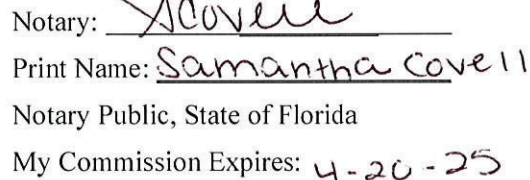 Notary: SCovell
Print Name: Samantha Covell
Notary Public, State of Florida
My Commission Expires: 4-20-25